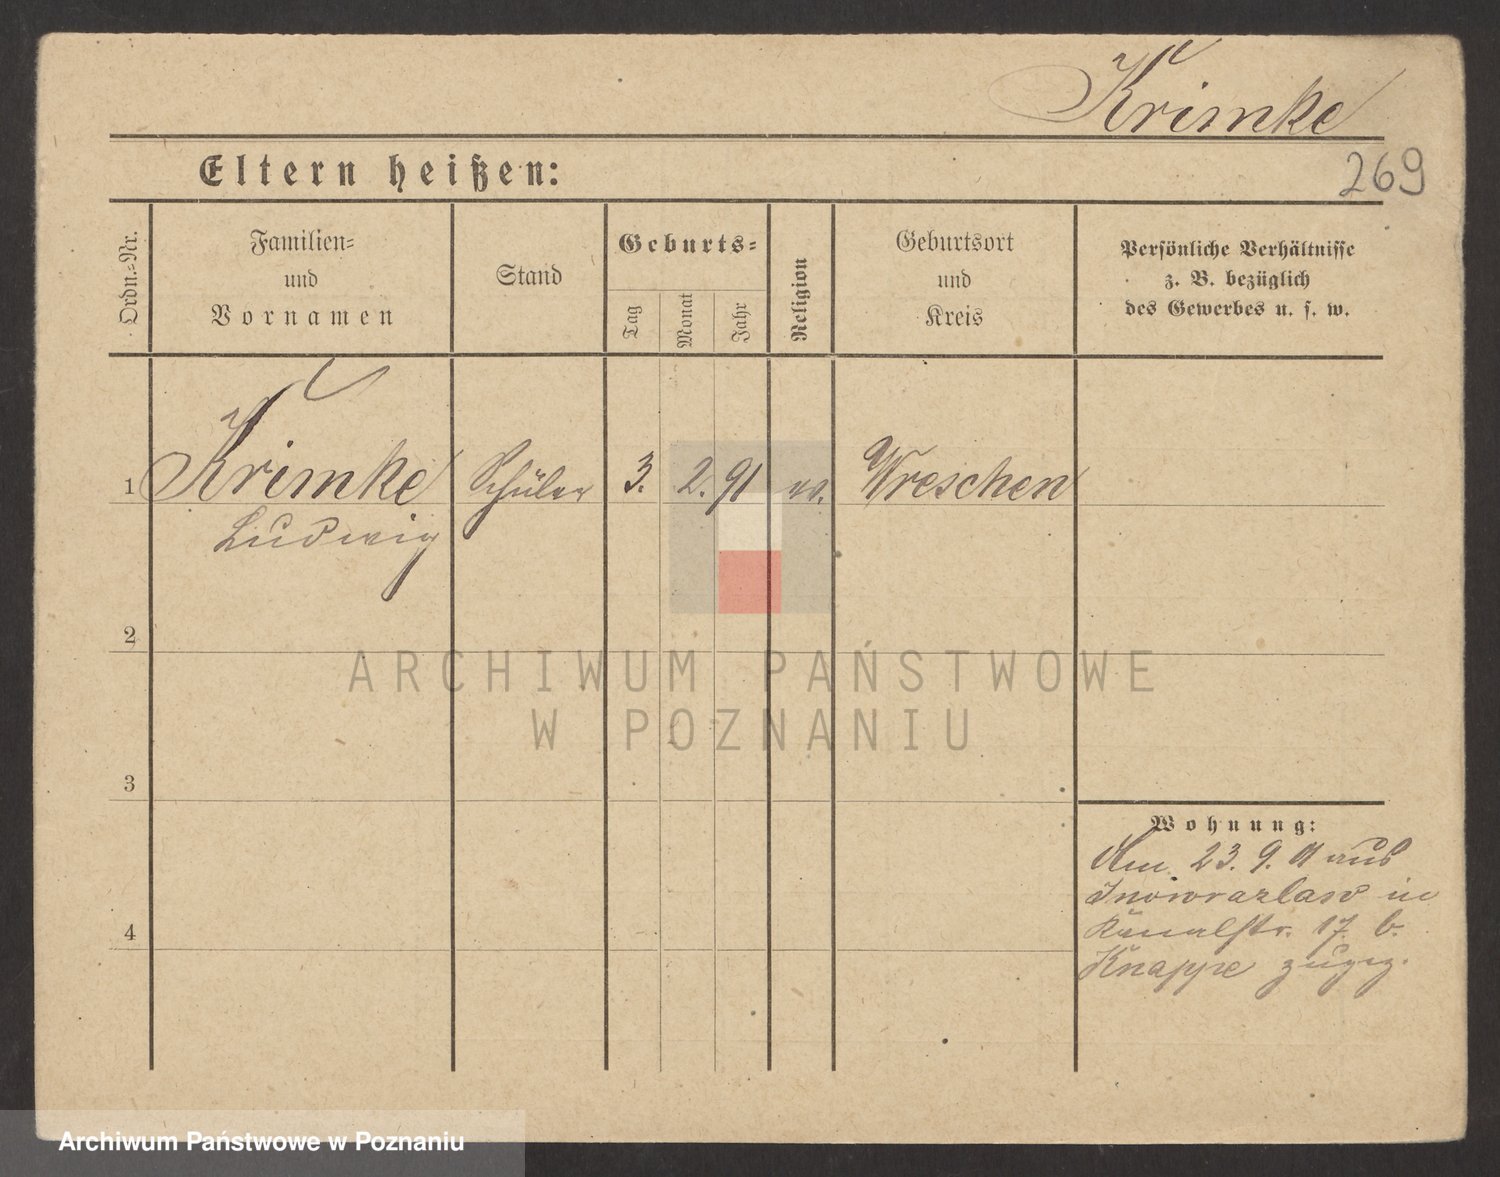 Krimke
269
Eltern heißen:
Ordn.-Nr.
Familien-
und
Vornamen
Stand
Geburts-
Tag
Monat
Jahr
Religion
Geburtsort
und
Kreis
Persönliche Verhältnisse
z. B. bezüglich
des Gewerbes u. s. w.
1 Krimke Schüler 3. 2. 91 ev. Wreschen
Ludwig
2
3
4
Wohnung:
Am 23. 9. aus
Inowrazlaw in
Kanalstr. 17 b.
Knappe zugez.
ARCHIWUM PAŃSTWOWE
W POZNANIU
Archiwum Państwowe w Poznaniu